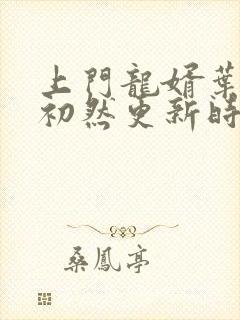 上門龍婿葉
初然更新時
桑鳳亭